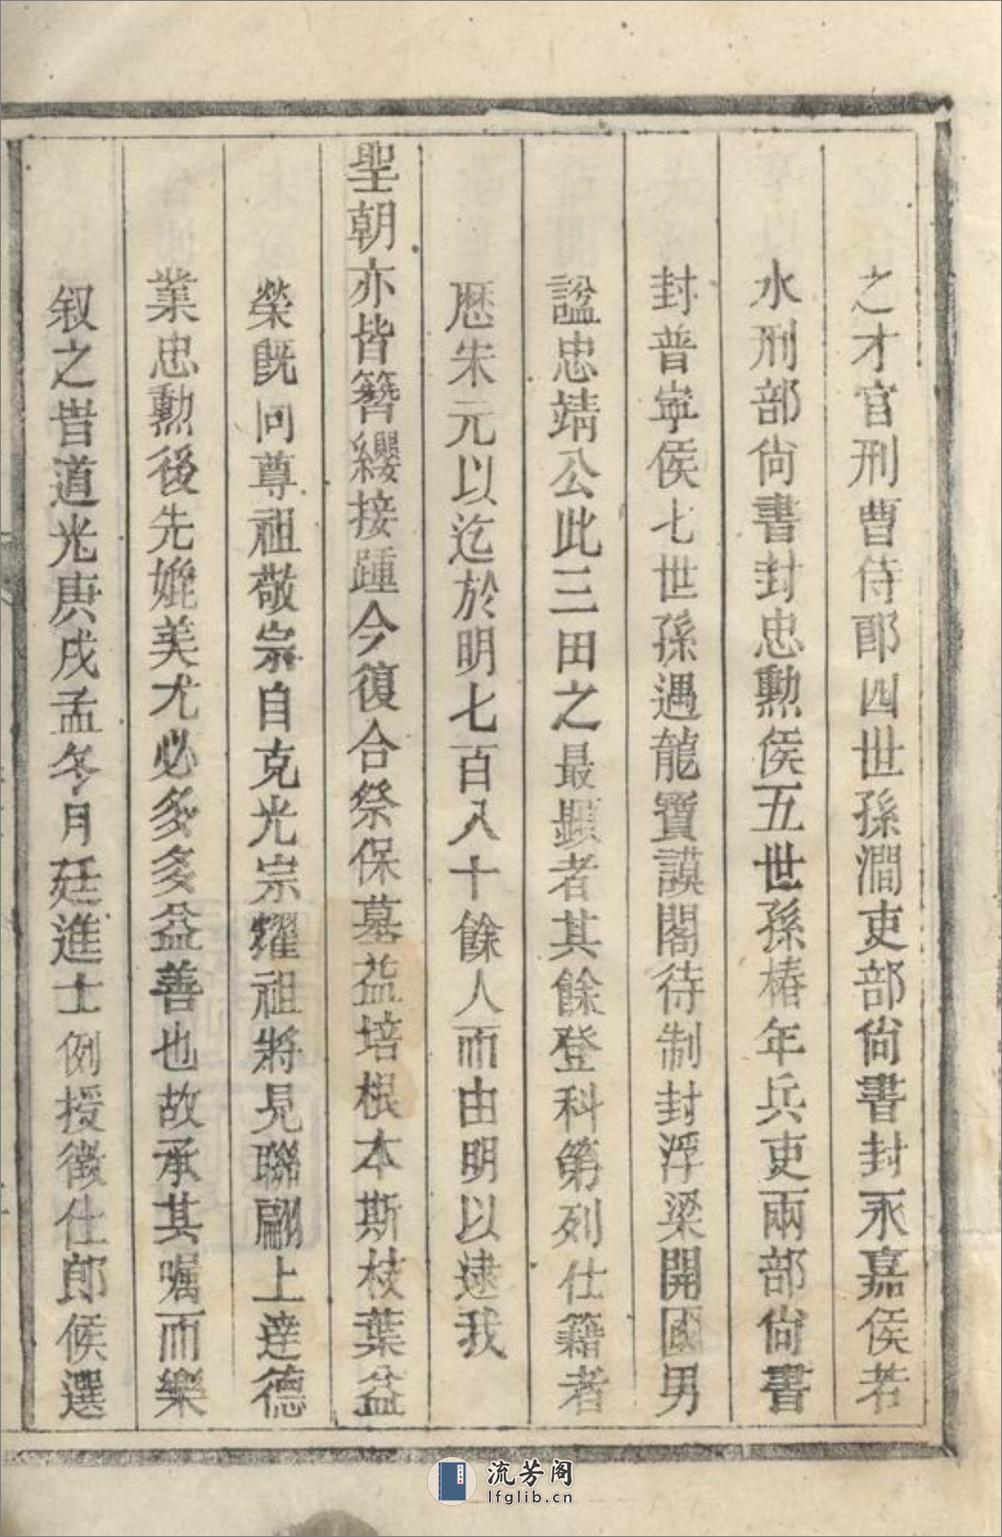 之才官刑曹侍郎四世孫澗吏部尙書封永嘉侯若
水刑部尙書封忠勲侯五世孫椿年兵吏兩部尙書
封普寧侯七世孫遇龍寶謨閣待制封浮梁開國男
諡忠靖公此三田之最顯者其餘登科第列仕籍者
歷朱元以迄於明七百八十餘人而由明以逮我
聖朝亦皆簪纓接踵今復合祭保墓益培根本斯枝葉益
榮旣同尊祖敬宗自克光宗耀祖將見聯翩上達德
業忠勲後先媲美尤必多多益善也故承其囑而樂
叙之旹道光庚戌孟冬月廷進士例授徵仕郎候選
流芳阁
lfglib.cn